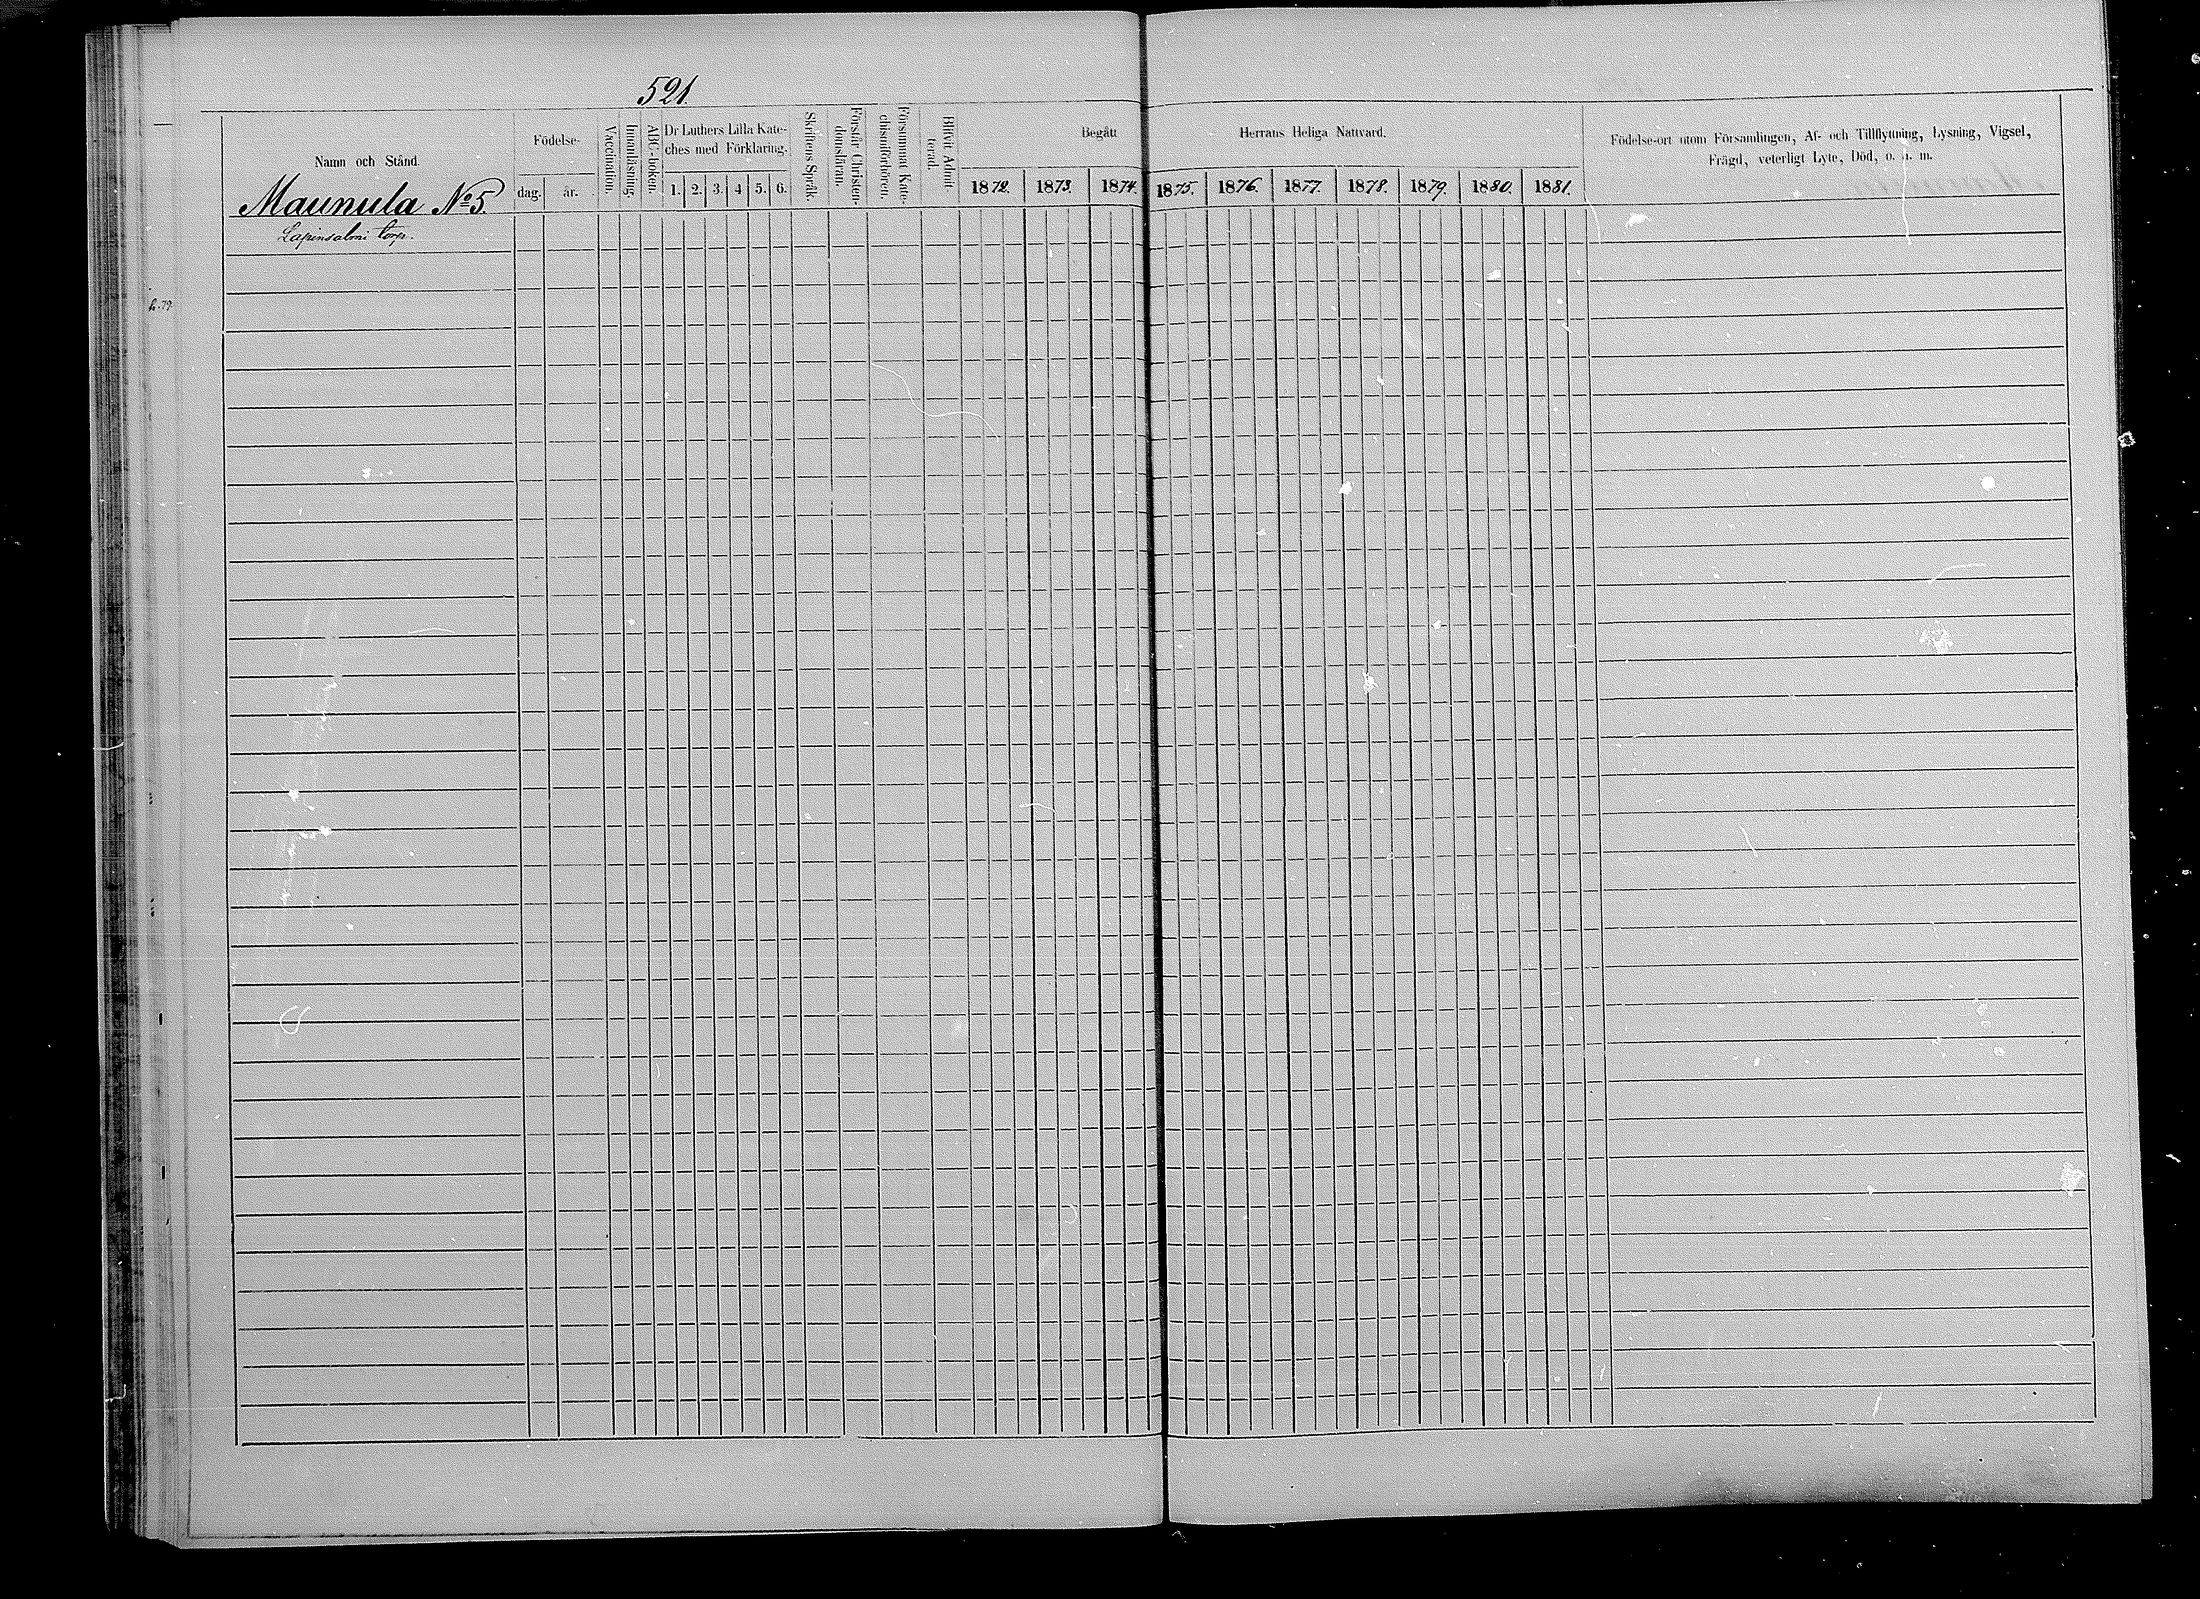 521.
Namn och Stånd.
Maunula No 5.
Lapinsalmi torp.
Födelse-
dag. år.
Vaccination.
Innanläsning.
ABC-boken.
Dr Luthers Lilla Kate-
ches med Förklaring.
1. 2. 3. 4 5. 6.
Skriftens Språk.
Förstår Christen-
domsläran.
Försummat Kate-
chismiförhören.
Blifvit Admit
terad.
Begått Herrans Heliga Nattvard.
1872. 1873. 1874. 1875. 1876. 1877. 1878. 1879. 1880. 1881.
Födelse-ort utom Församlingen, Af- och Tillflyttning, Lysning, Vigsel,
Frägd, veterligt Lyte, Död, o. s. m.